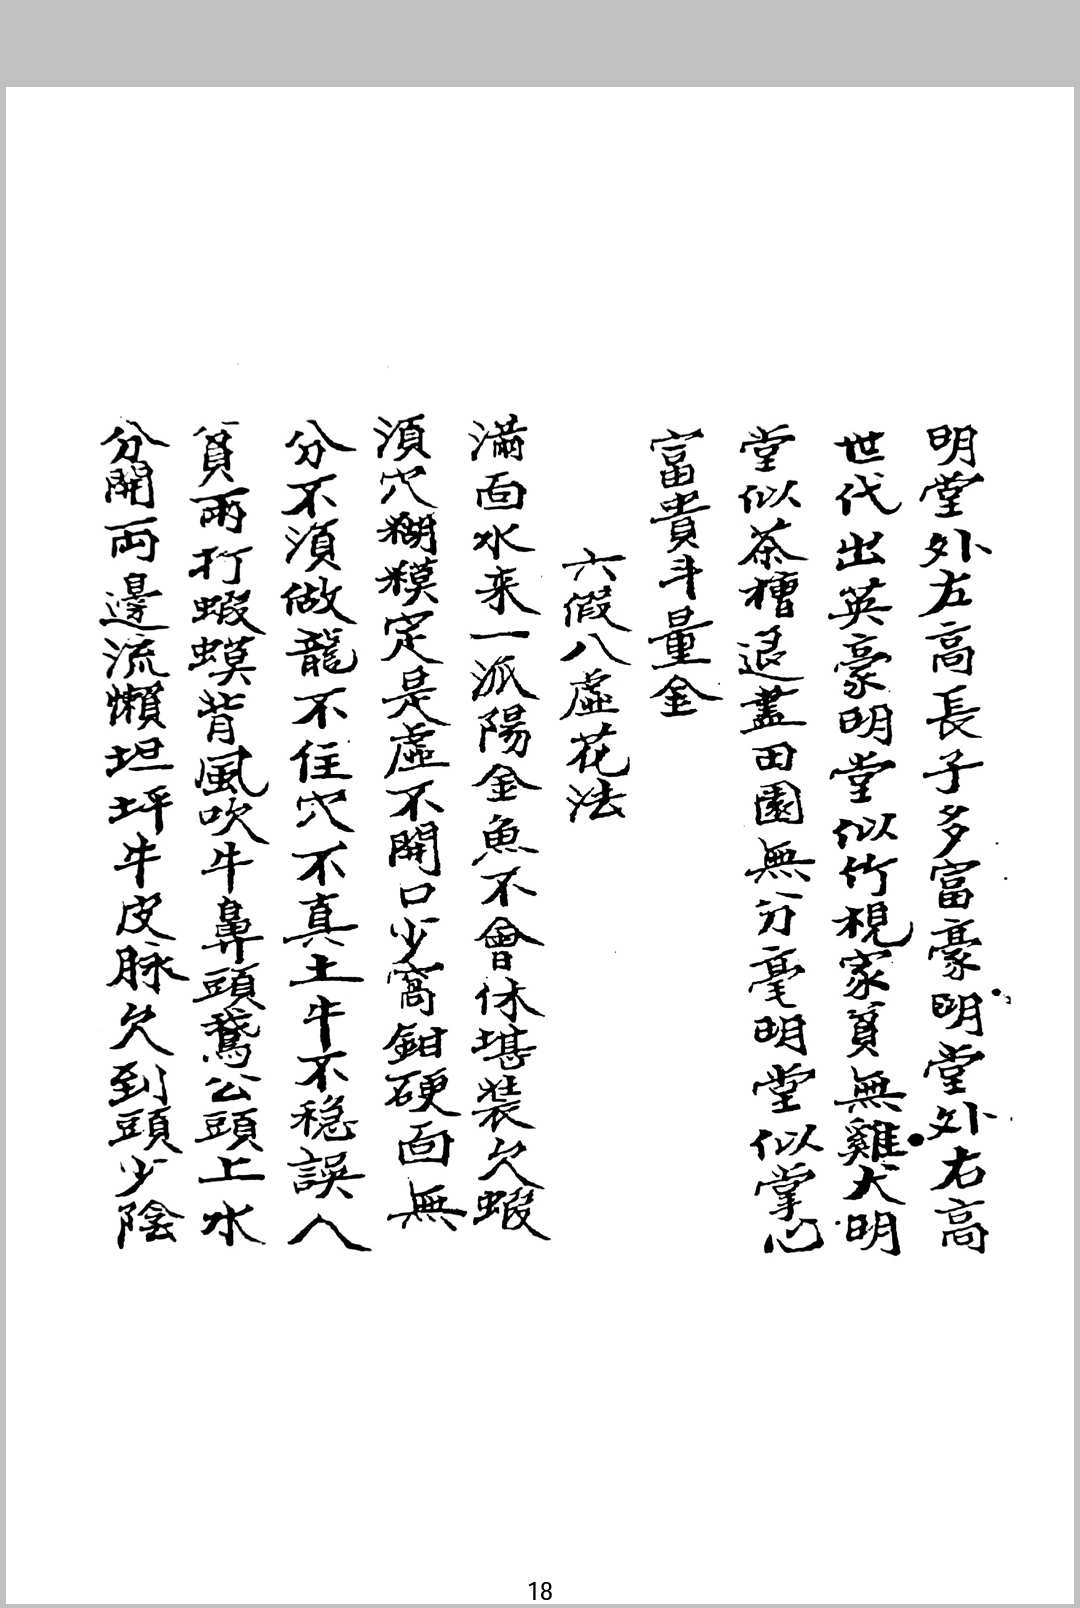 明堂外左高長子多富豪明堂外右高
世代出英豪明堂似竹梘家貧無雞犬明
堂似茶槽退盡田園無分毫明堂似掌心
富貴斗量金
六假八虛花法
滿面水来一派陽金魚不會休堪裝欠蝦
須穴糊糢定是虛不開口少窩鉗硬面無
分不須做龍不住穴不真土牛不穏誤人
貧雨打蝦蟆背風吹牛鼻頭鵞公頭上水
分開両邊流懶坦坪牛皮脉欠到頭少陰
18